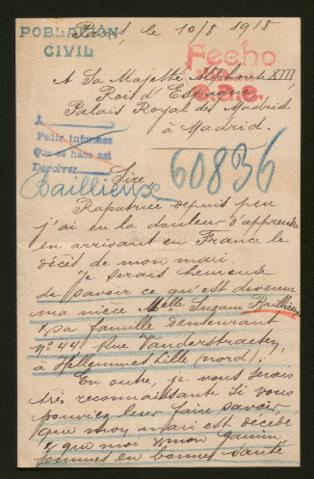 POBLACIÓN
CIVIL
le 10/8 1918
Fecho
A Sa Majesté Alphonse XIII,
Roi d'Espagne
Palais Royal de Madrid
à Madrid.
Pedir informes
Que se hace así
Devolver
60836
Baillieux
Sire
Rapatriée depuis peu
j'ai eu la douleur d'apprendre
en arrivant en France le
décès de mon mari.
Je serais heureuse
de savoir ce qu'est devenue
ma nièce Mlle Suzane Baillieux
& sa famille demeurant
No 44 Rue Vanderstraeten,
à Hellemmes Lille (nord).
En outre, je vous serais
très reconnaissante si vous
pouviez leur faire savoir,
que mon mari est décédé
& que moi & mon gamin
sommes en bonne santé